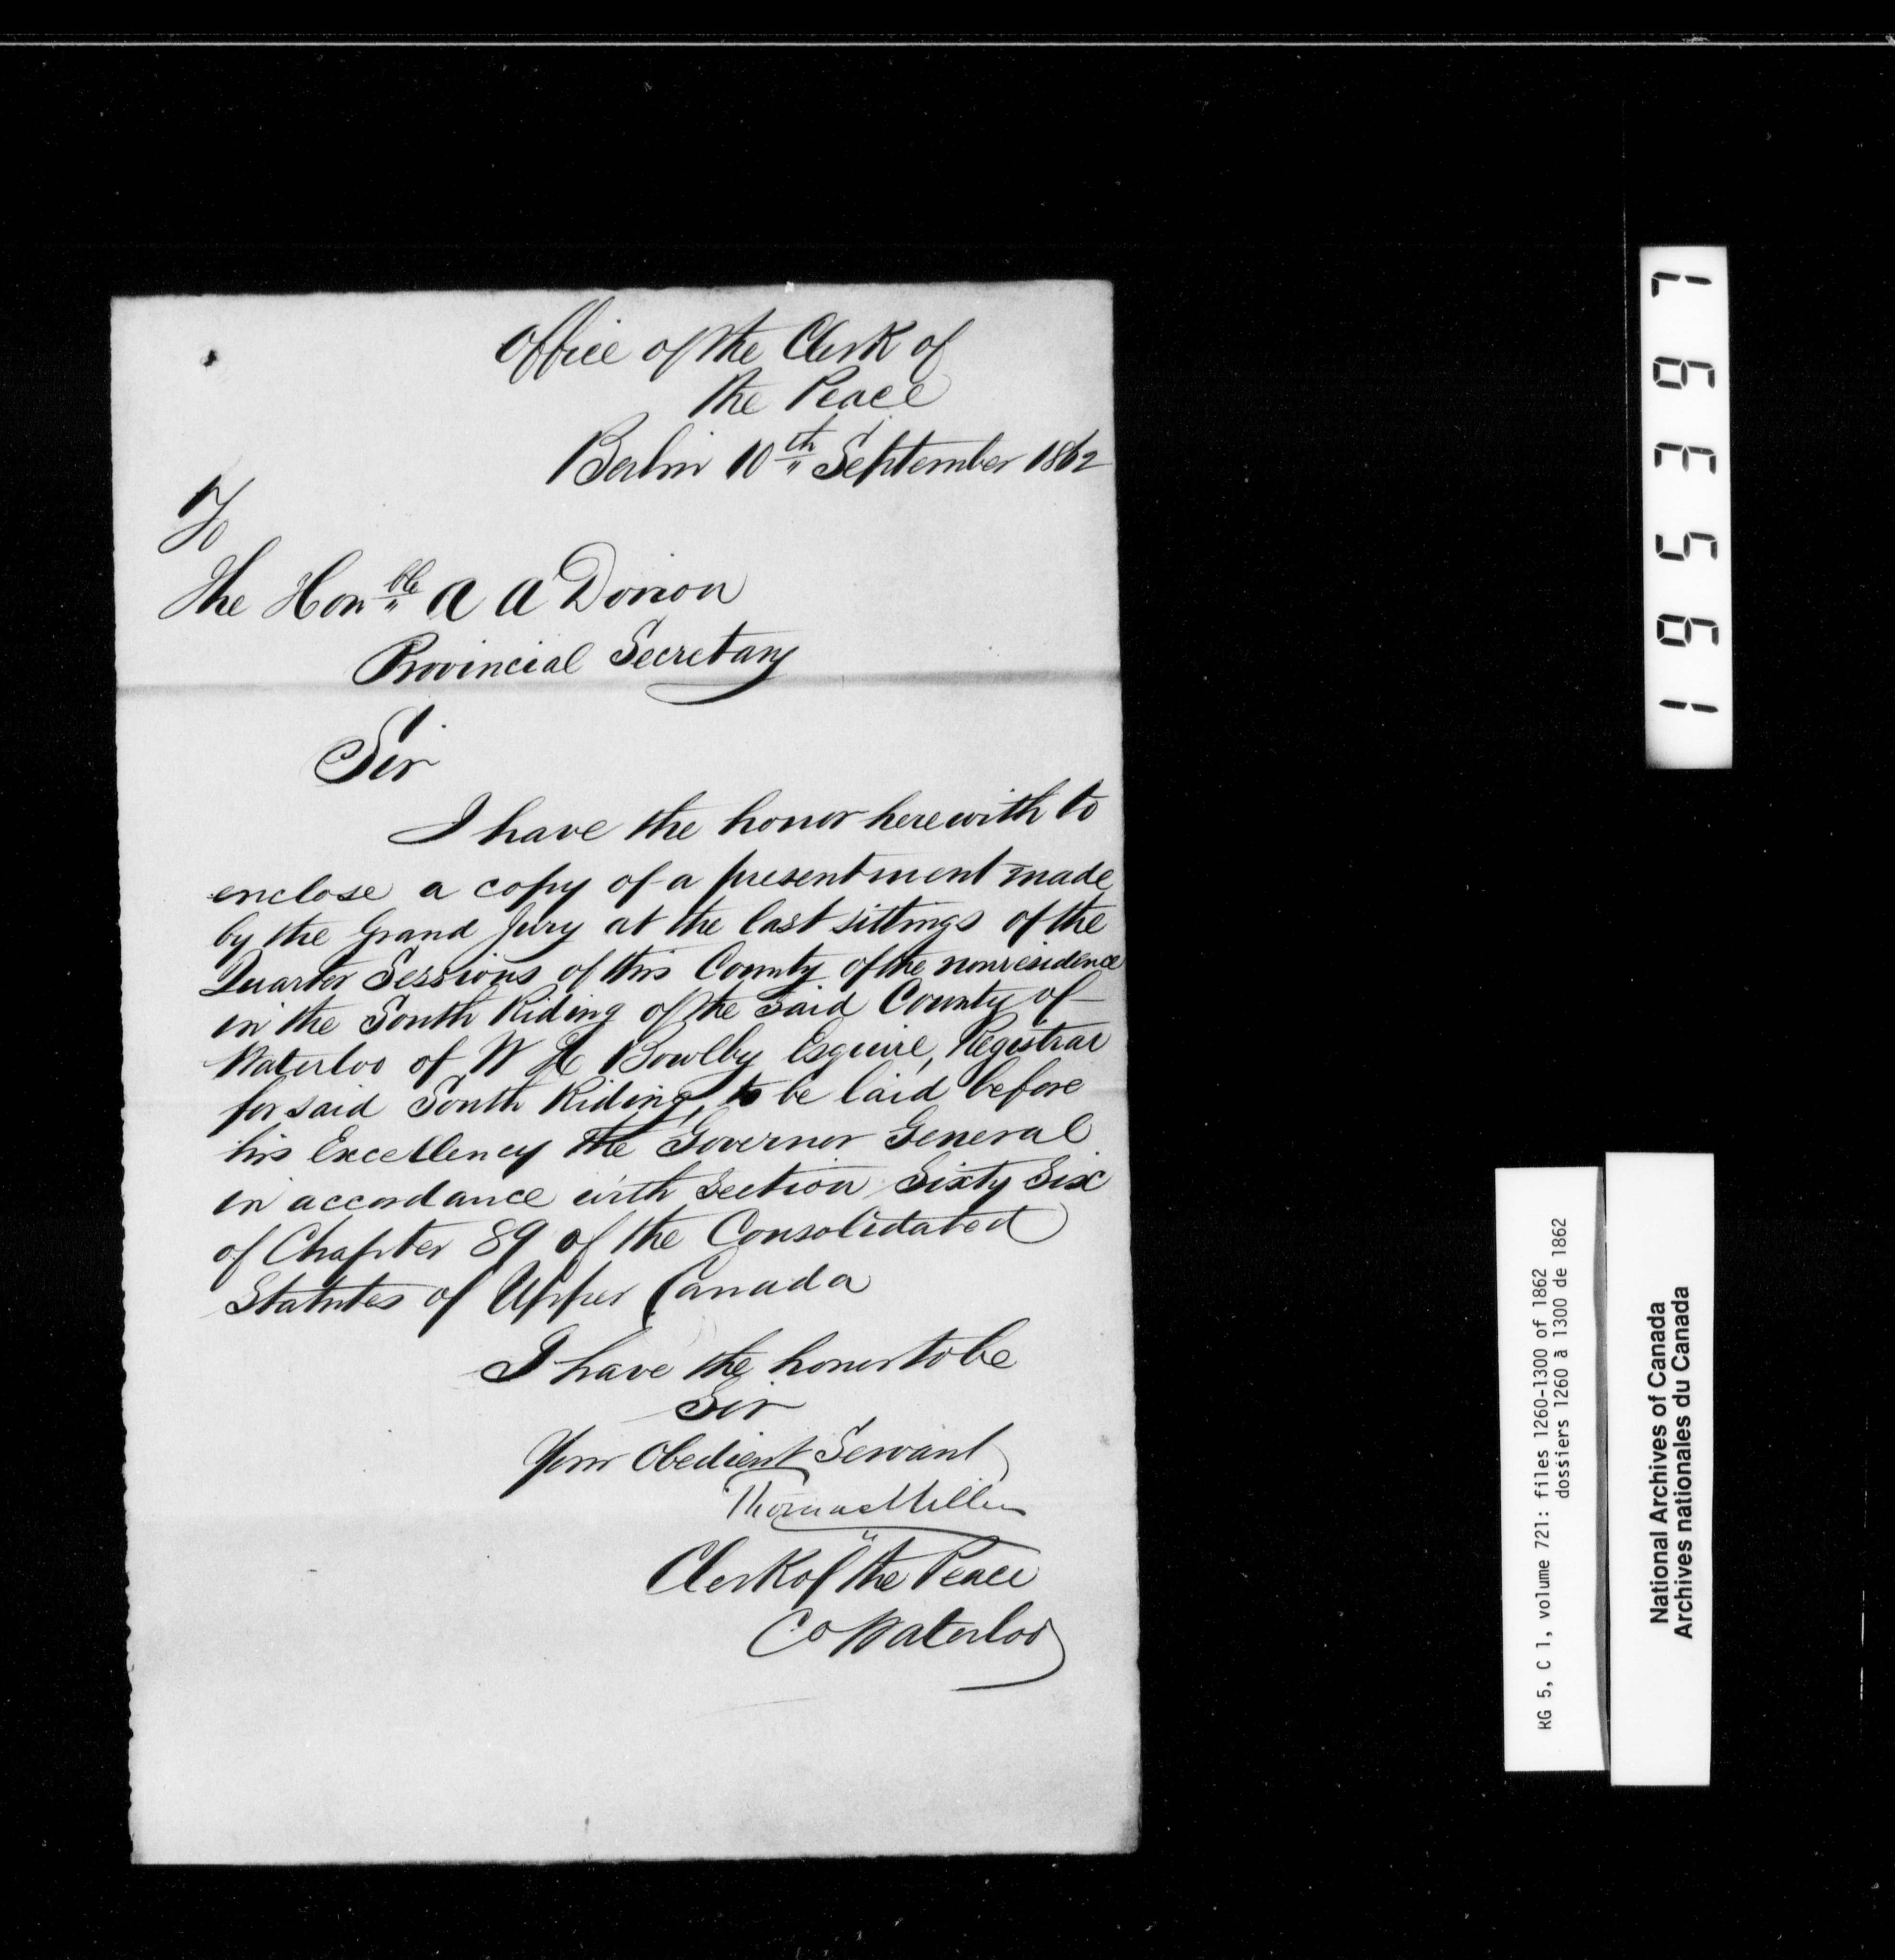 Office of the Clerk of
the Peace
Berlin 10th September 1862
To
The Honble A A Dorion
Provincial Secretary
Sir
I have the honor herewith to
enclose a copy of a presentment made
by the Grand Jury at the last sittings of the
Quarter Sessions of this County of the nonresidence
in the South Riding of the said County of
Waterloo of W H Bowlby Esquire, Registrar
for said South Riding, to be laid before
his Excellency the Governor General
in accordance with Section Sixty Six
of Chapter 89 of the Consolidated
Statutes of Upper Canada
I have the honor to be
Sir
Your Obedient Servant
Thomas Miller
Clerk of the Peace
Co Waterloo
1 6 5 3 6 7
RG 5, C 1, volume 721: files 1260-1300 of 1862
dossiers 1260 à 1300 de 1862
National Archives of Canada
Archives nationales du Canada